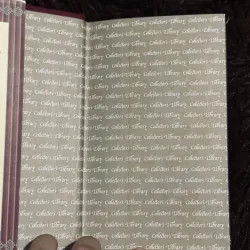 Collector's Library Collector's Library Collector's
Library Collector's Library Collector's Library
Collector's Library Collector's Library Collector's
Library Collector's Library Collector's Library
Collector's Library Collector's Library Collector's
Library Collector's Library Collector's Library
Collector's Library Collector's Library Collector's
Library Collector's Library Collector's Library
Collector's Library Collector's Library Collector's
Library Collector's Library Collector's Library
Collector's Library Collector's Library Collector's
Library Collector's Library Collector's Library
Collector's Library Collector's Library Collector's
Library Collector's Library Collector's Library
Collector's Library Collector's Library Collector's
Library Collector's Library Collector's Library
Collector's Library Collector's Library Collector's
Library Collector's Library Collector's Library
Collector's Library Collector's Library
Library Collector's Library